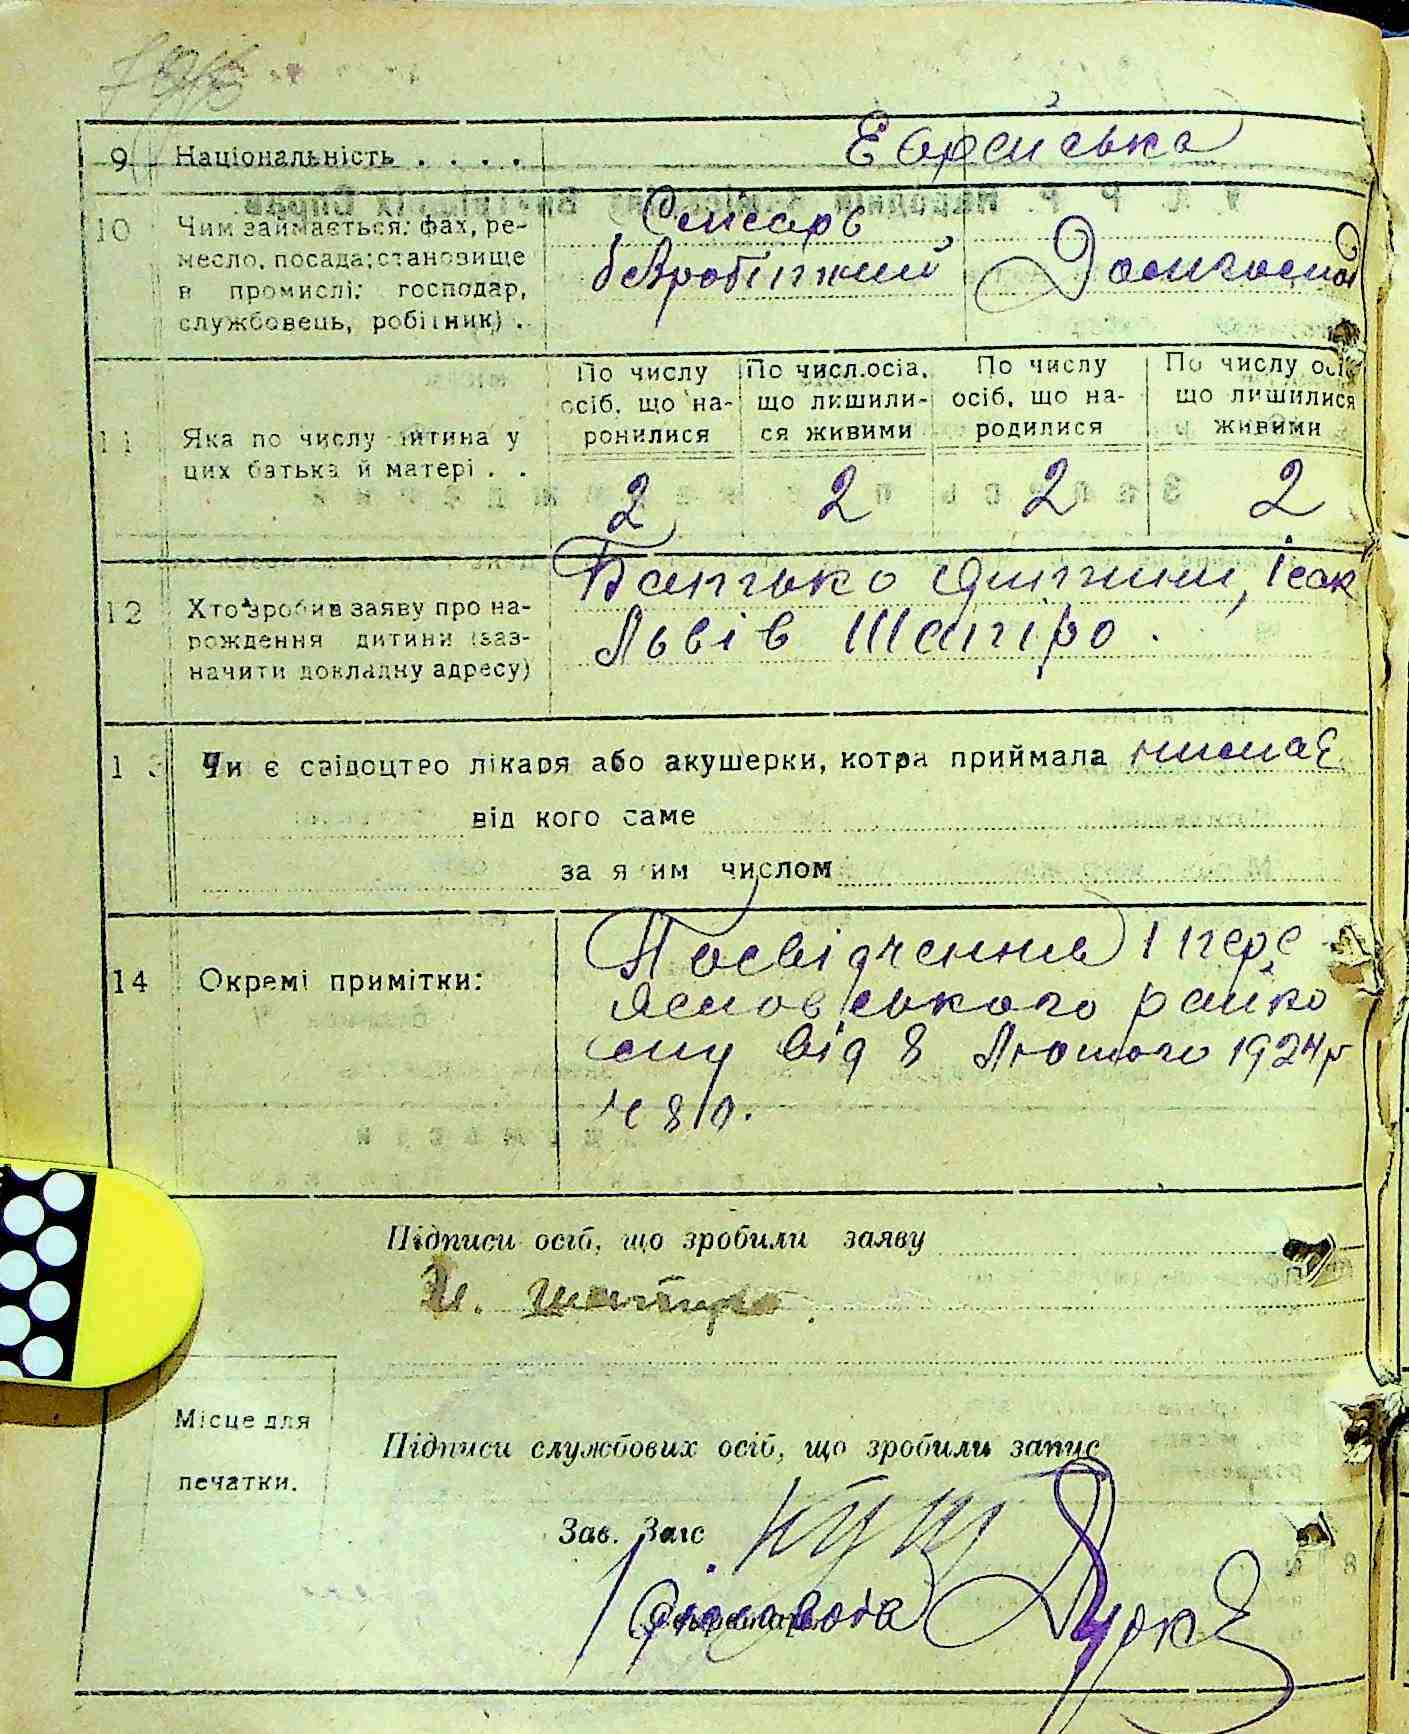 9 Національність . . . . Еврейська
10 Чим займається: фах, ре-
месло, посада; становище
в промислі: господар,
службовець, робітник) .
Слюсарь
безробітний
Домогоспод
11 Яка по числу дитина у
цих батька й матері . .
По числу
осіб, що на-
ронилися
2
По числ.осіа,
що лишили-
ся живими
2
По числу
осіб, що на-
родилися
2
По числу осіб
що лишилися
живими
2
12 Хто зробив заяву про на-
рождення дитини (заз-
начити докладну адресу)
Батько дитини, Ісак
Львів Шапіро.
13 Чи є свідоцтво лікаря або акушерки, котра приймала немає
від кого саме
за яким числом
14 Окремі примітки:
Посвідчення І пере
яславського райко
му від 8 Лютого 1924 р
ч 810.
Підписи осіб, що зробили заяву
И. Шапиро.
Місце для
печатки.
Підписи службових осіб, що зробили запис
Зав. Загс
Діловода